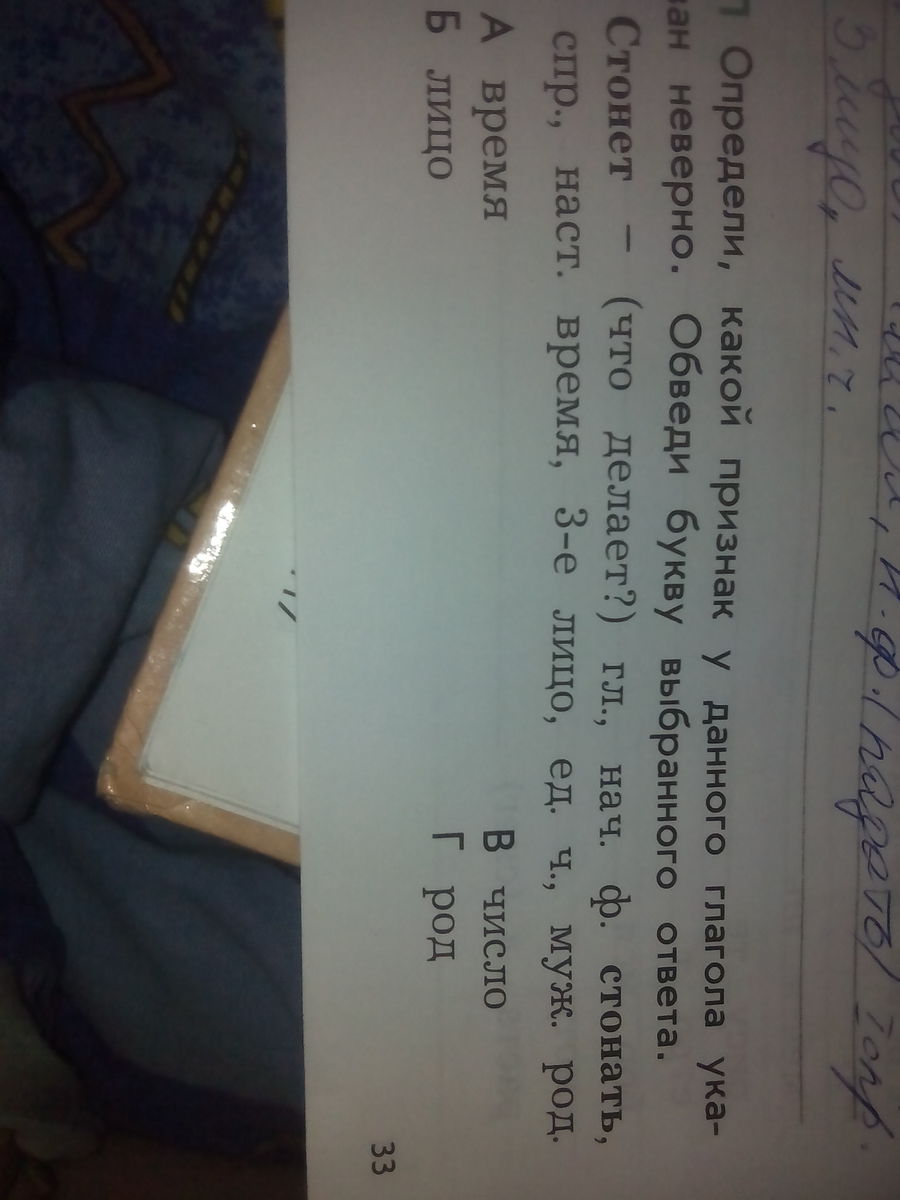 3 лицо, мн.ч.
Определи, какой признак у данного глагола ука-
зан неверно. Обведи букву выбранного ответа.
Стонет – (что делает?) гл., нач. ф. стонать,
спр., наст. время, 3-е лицо, ед. ч., муж. род.
А время
Б лицо
В число
Г род
33